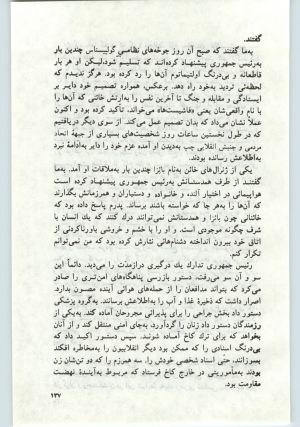 گفتند.
به‌ما گفتند که صبح آن روز جوخه‌های نظامی گولپیست‌ها چندین بار
به‌رئیس جمهوری پیشنهاد کرده‌اند که تسلیم شود، لیکن او هر بار
قاطعانه و بی‌درنگ اولتیماتوم آن‌ها را رد کرده بود. هرگز ندیدم که
لحظه‌ئی تردید به‌خود راه دهد. برعکس، همواره تصمیم خود دایر بر
ایستادگی و مقابله و جنگ تا آخرین نفس را به‌ارتش خائنی که آن‌ها را
با نام واقعی‌شان یعنی «فاشیست‌ها» می‌خواند، تکرار می‌کرد. چنان که
عملاً نشان می‌داد که بدان تصمیم عمل می‌کند. از سوی دیگر دریافتیم
که در طول نخستین ساعات روز شخصیت‌های بسیاری از جبهۀ اتحاد
مردمی و جنبش انقلابی چپ به‌دیدن او آمده عزم خود را دایر به‌ادامۀ نبرد
به‌اطلاعش رسانده بودند.
یکی از ژنرال‌های خائن به‌نام بائزا چندین بار به‌ملاقات او آمد. به‌ما
گفتند از طرف همدستانش به‌رئیس جمهوری پیشنهاد کرده است
هواپیمائی در اختیار او، خانواده و دستیاران و همرزمانش بگذارند
که آن‌ها را به‌هر جا که خواسته باشند برساند. پدرم پاسخ داده بود که
خائنانی چون بائزا و همدستانش نمی‌توانند درک کنند که یک انسان با
شرف چگونه موجودی است. و او را با خشم و خروشی باورنکردنی از
اتاق خود بیرون انداخته دشنام‌هائی نثارش کرده بود که من نمی‌توانم
تکرار کنم.
رئیس جمهوری تدارک یک درگیری درازمدت را می‌دید. دائماً این
سو و آن سو می‌رفت، دستور بازرسی پناهگاه‌های امن‌تری را صادر
می‌کرد که بتواند مدافعان را از حمله‌های هوائی آینده مصون بدارد.
اصرار داشت که ذخیرۀ غذا و آب را به‌اطلاعش برسانند. به‌گروه پزشکی
دستور داد بخش جراحی را برای پذیرائی مجروحان آماده کند. به‌یکی از
رزمندگان دستور داد زنان را گردآورد، به‌جای امنی منتقل کند و از آنان
بخواهد که برای ترک کاخ آماده شوند. سپس دستور اکید داد که
بی‌درنگ اسنادی را که ممکن بود دیگر انقلابیون را به‌مخاطره افکند
بسوزانند، حتی اسناد شخصی خودش را. سه همرزم را که دو تن‌شان زن
بودند به‌مأموریتی در خارج کاخ فرستاد که مربوط به‌آیندۀ نهضت
مقاومت بود.
۱۳۷